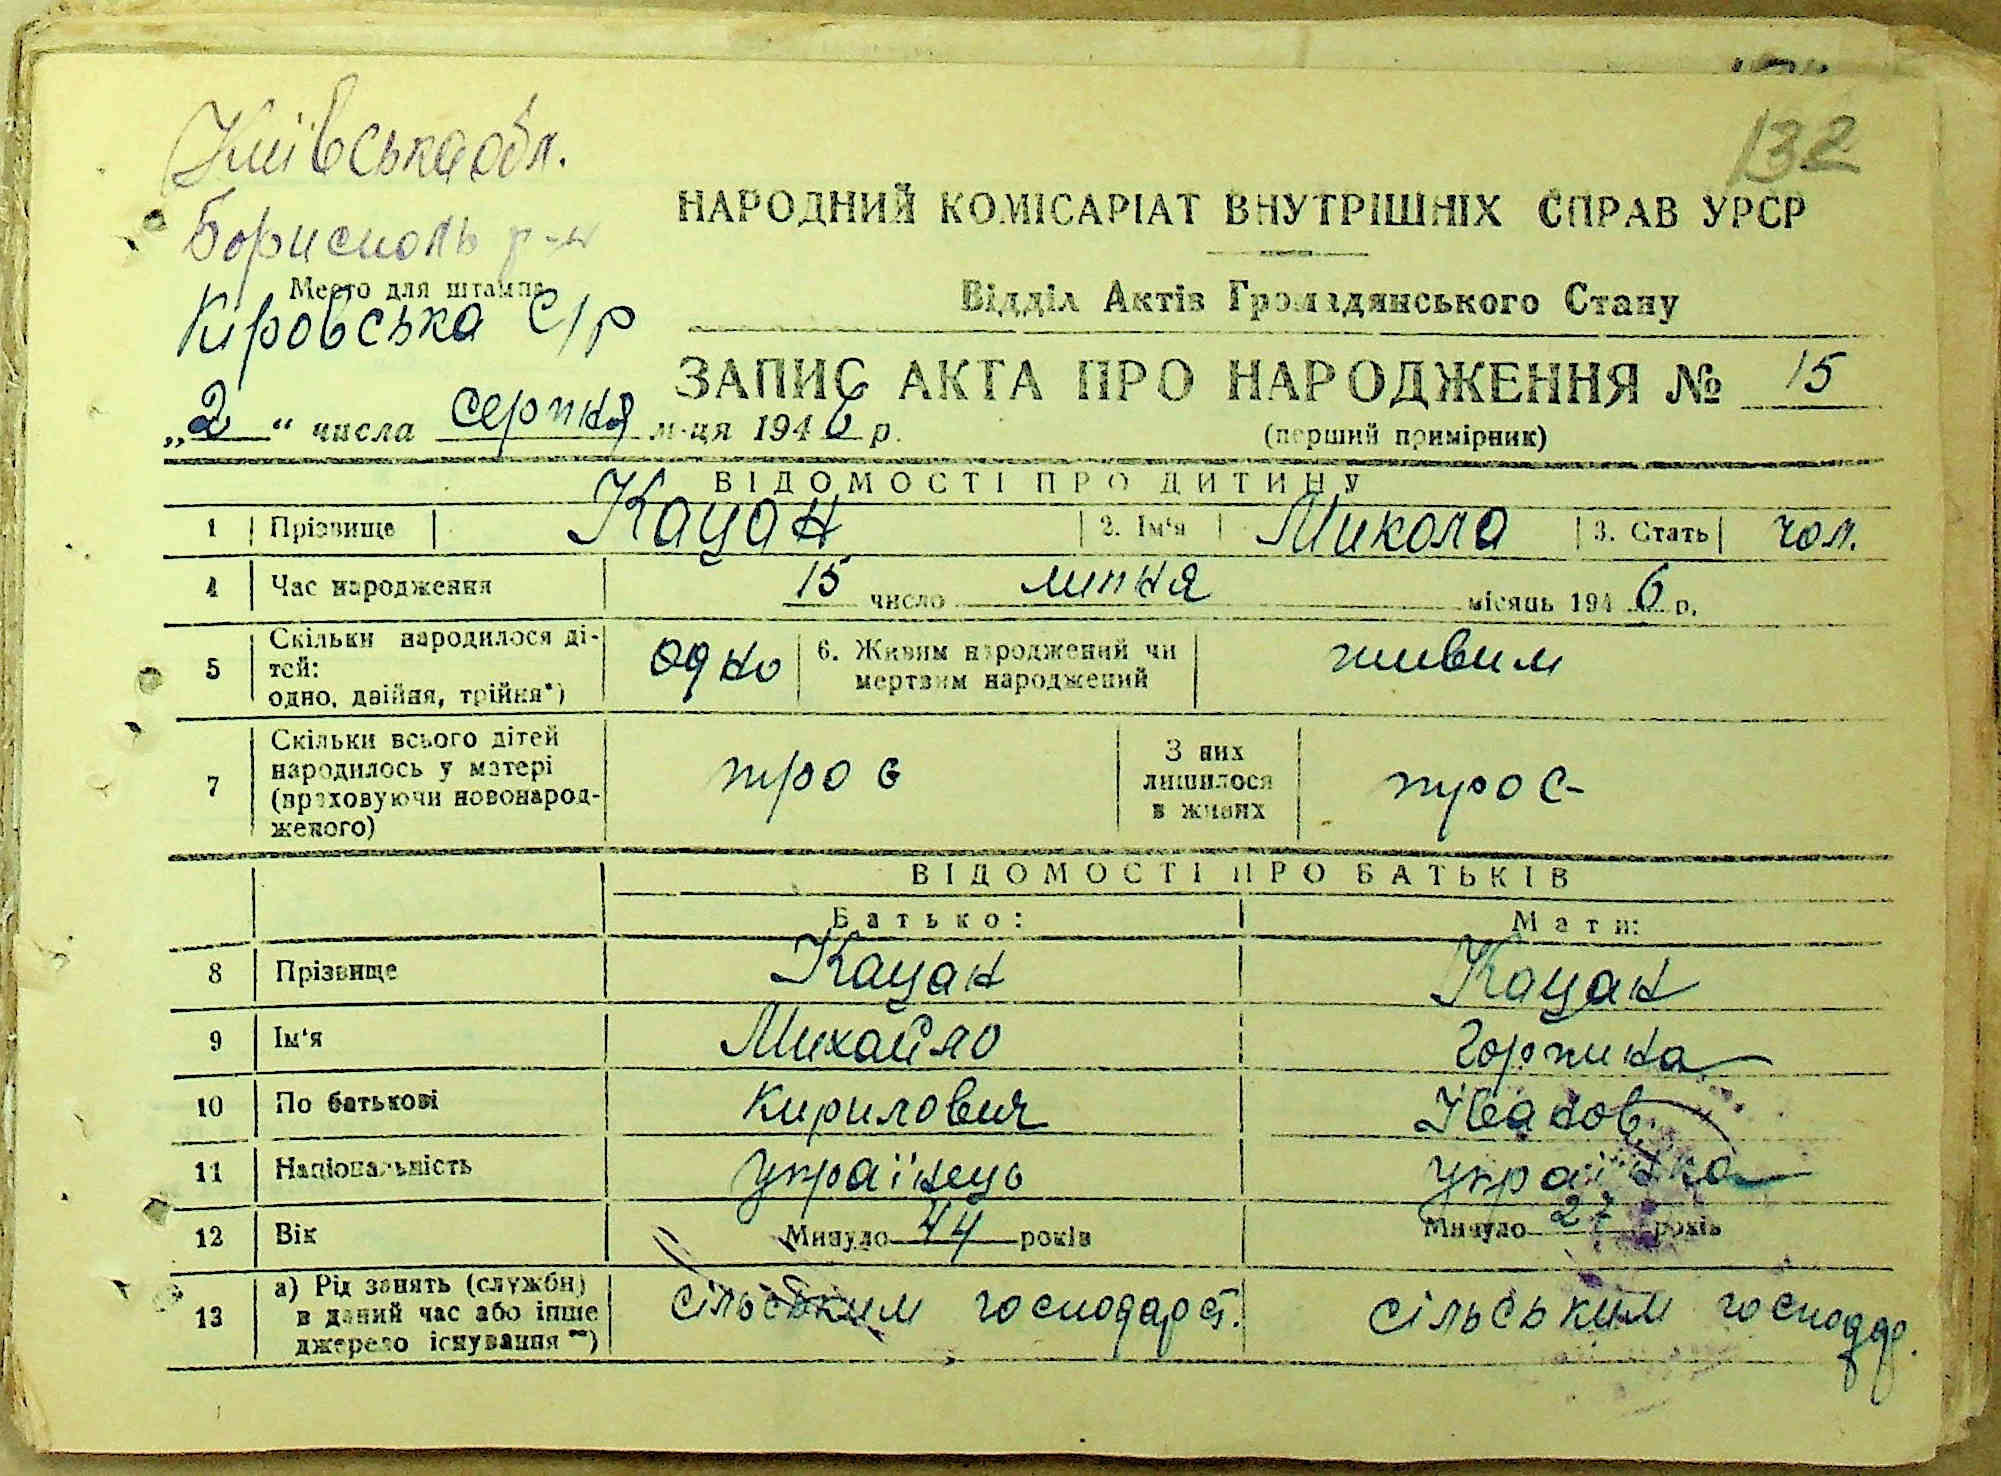 132
Київська обл.
Борисполь р-н
Место для штампа
Кіровська с/р
„2“ числа серпня м-ця 1946 р.
НАРОДНИЙ КОМІСАРІАТ ВНУТРІШНІХ СПРАВ УРСР
Відділ Актів Громадянського Стану
ЗАПИС АКТА ПРО НАРОДЖЕННЯ № 15
(перший примірник)
ВІДОМОСТІ ПРО ДИТИНУ
1 Прізвище Кацан 2. Ім'я Микола 3. Стать чол.
4 Час народження 15 число липня місяць 1946 р.
5 Скільки народилося ді-
тей:
одно, двійня, трійня*) одно 6. Живим народжений чи
мертвим народжений живим
7 Скільки всього дітей
народилось у матері
(враховуючи новонарод-
женого) троє З них
лишилося
в живих троє
ВІДОМОСТІ ПРО БАТЬКІВ
Батько: Мати:
8 Прізвище Кацан Кацан
9 Ім'я Михайло Горпина
10 По батькові Кирилович Іванов.
11 Національність українець українка
12 Вік Минуло 44 років Минуло 27 років
13 а) Рід занять (служби)
в даний час або інше
джерело існування **) сільським господарст. сільським господар.